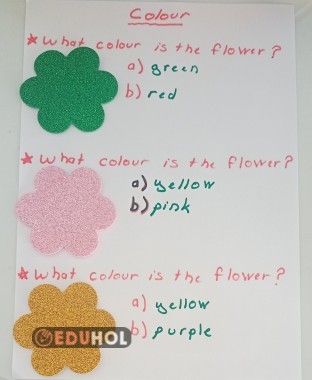 Colour
* What colour is the flower?
a) green
b) red
* What colour is the flower?
a) yellow
b) pink
* What colour is the flower?
a) yellow
b) purple
EDUHOL